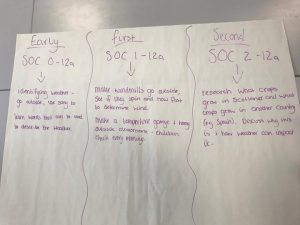 Early
SOC 0-12a
Identifying weather -
go outside, use song to
determine wind.
Learn words that can be used
to describe the weather.
First
SOC 1-12a
Make windmills go outside,
see if they spin and how fast
to determine wind.
Make a temperature gauge + hang
outside classrooms - children
check every morning.
Second
SOC 2-12a
research what crops
grow in Scotland and what
crops grow in another country
(eg. Spain). Discuss why this
is + how weather can impact
it.